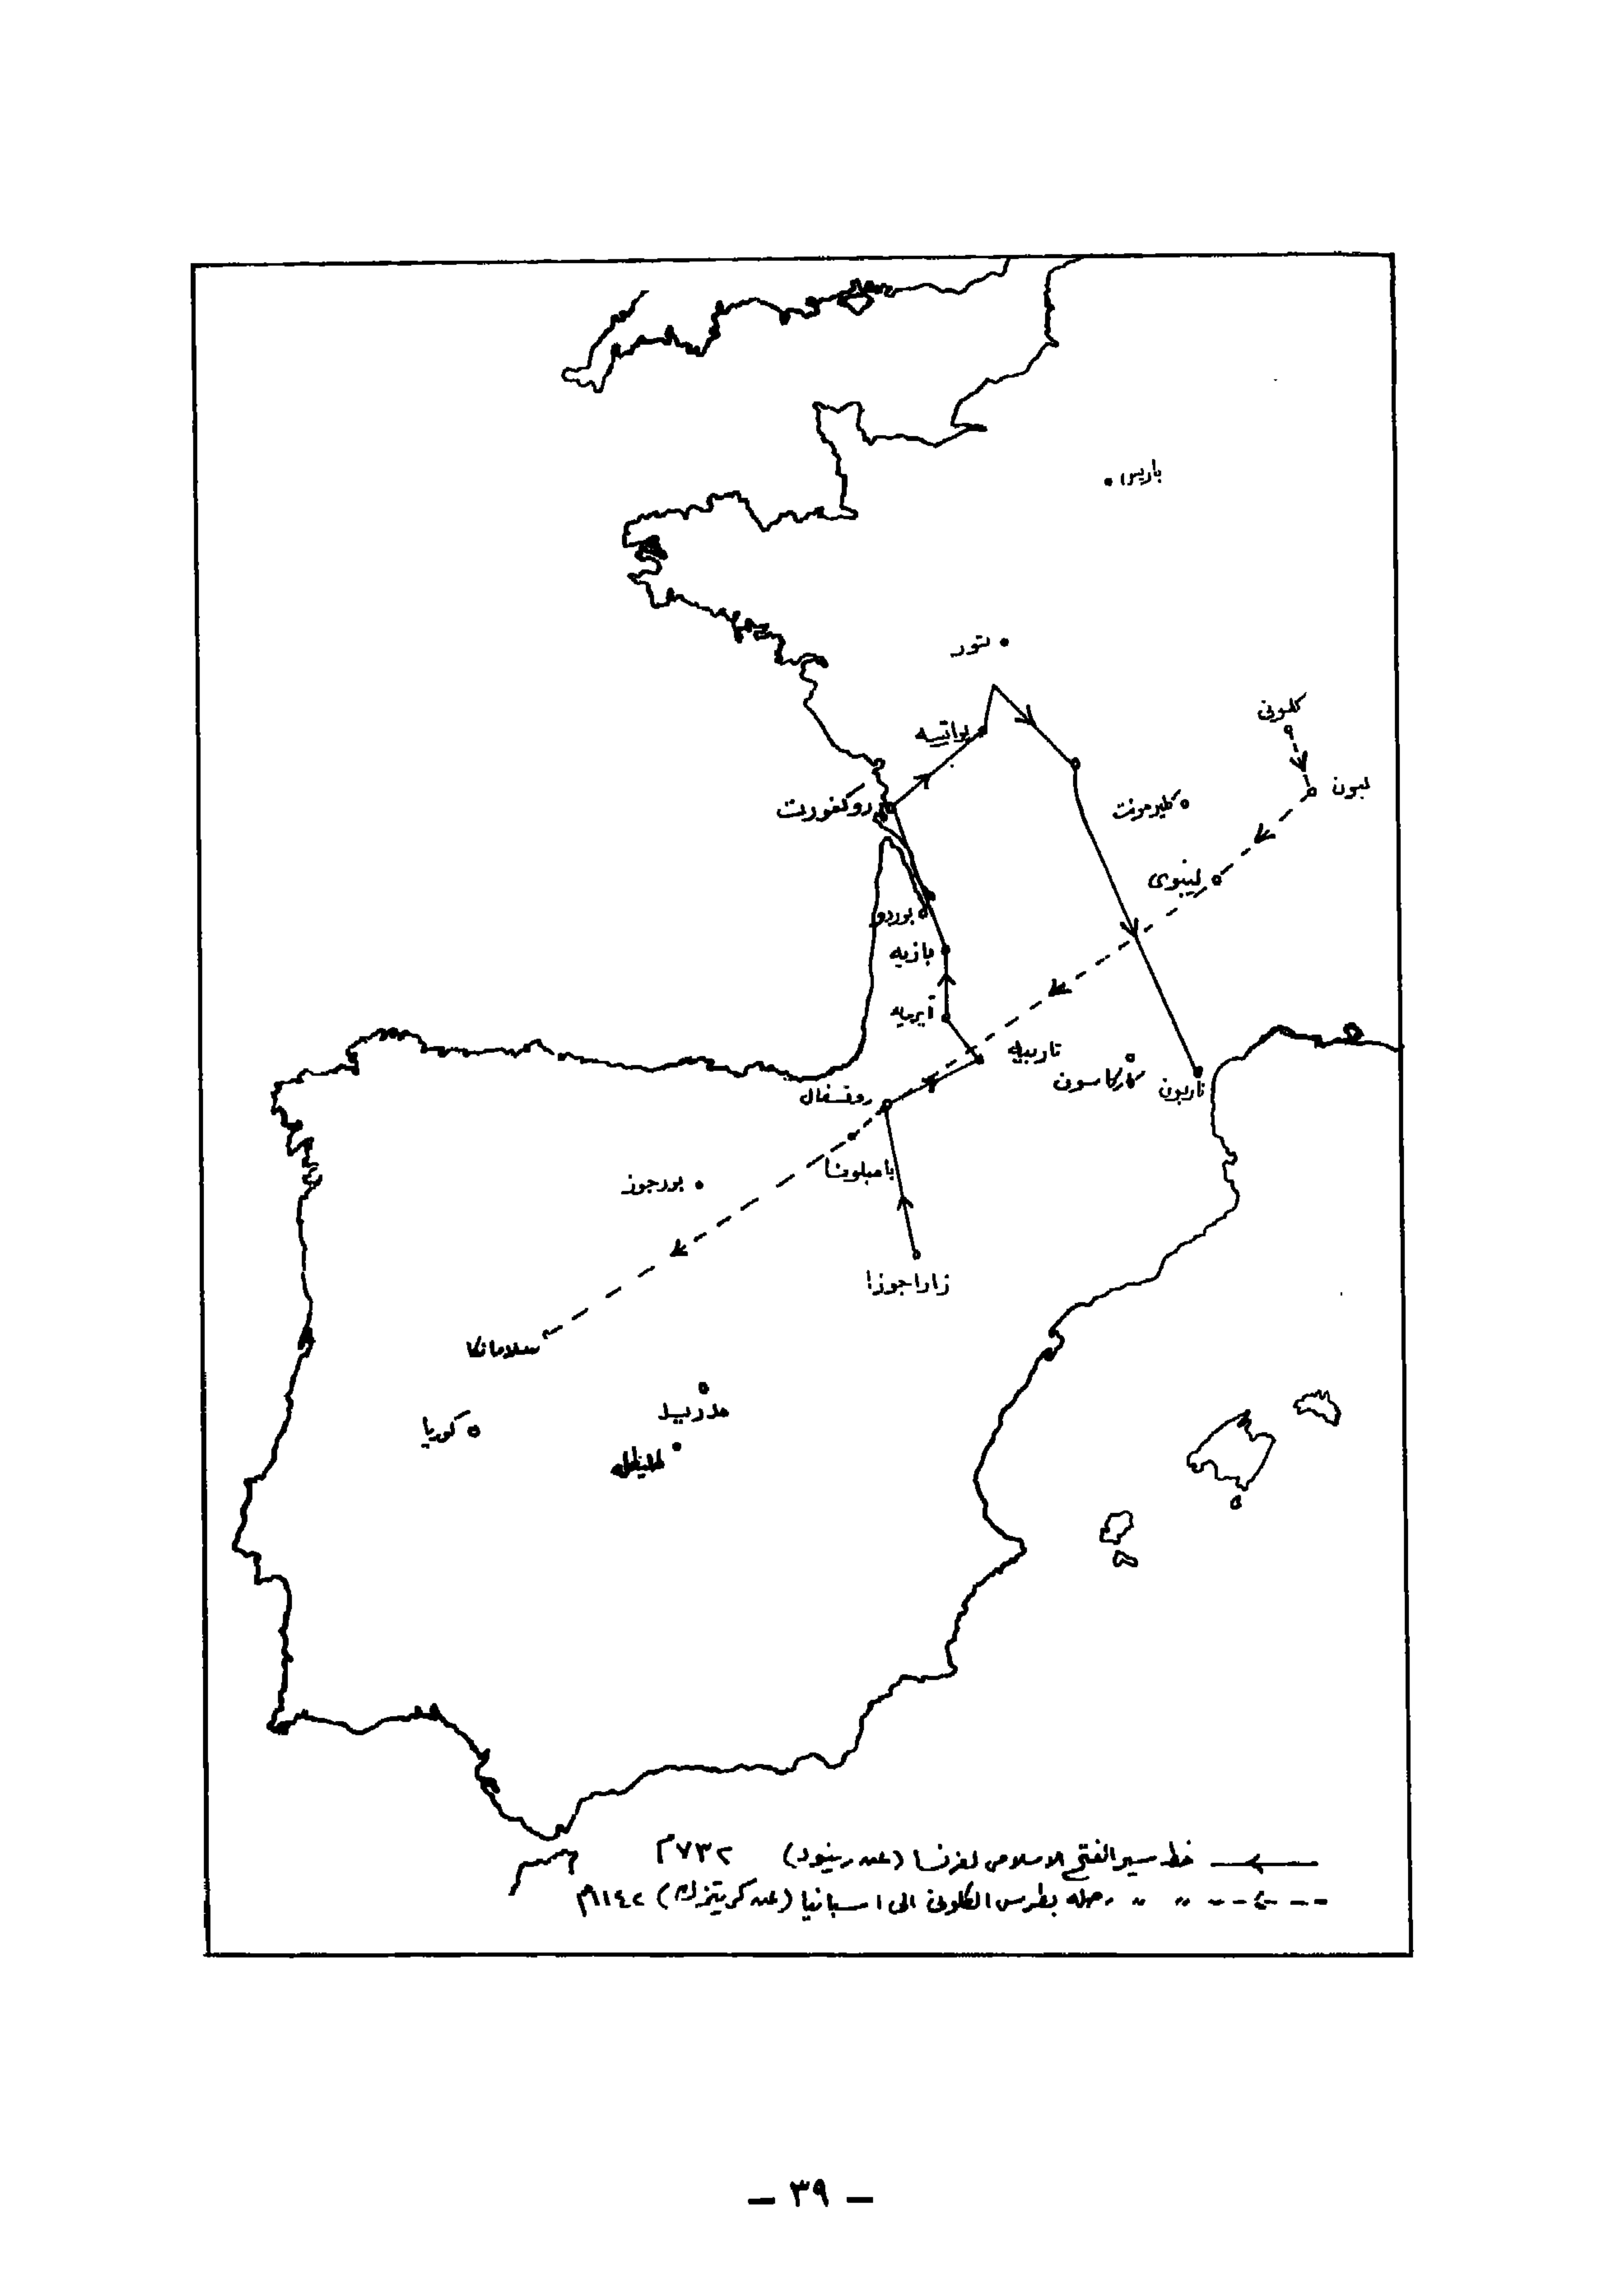 باريس
تور
كلونى
بواتييه
ليون
روكفورت
كليرمونت
لينوى
بوردو
بازيه
آيريه
تاربيه
كاركاسون
ناربون
رونسفال
بامبلونا
بورجوز
زاراجوزا
سلامانكا
مدريد
كوريا
طليطله
خط سير الفتح الاسلامى لفرنسا (عند رينود) ٧٣٢م
" " رحله بطرس الكلونى الى اسبانيا (عند كريتزك) ١١٤٢م
— ٣٩ —